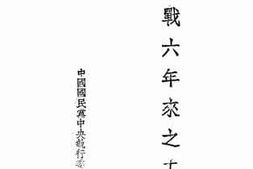 戰六年來之
中國國民黨中央執行委